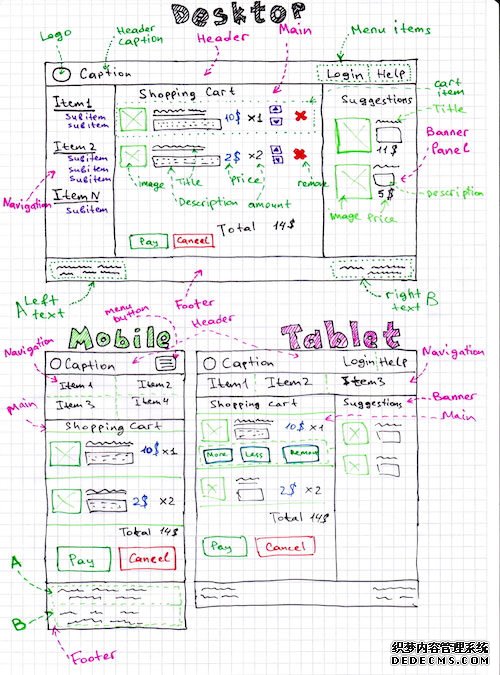 Desktop
Logo
Header caption
Header
Main
Menu items
Caption
Login
Help
Shopping Cart
cart item
Item1
Subitem
Subitem
Item2
Subitem
Subitem
Subitem
ItemN
Subitem
Navigation
10$ ×1
2$ ×2
image
Title
Price
remove
Description
amount
Total 14$
Pay
Cancel
Suggestions
Title
11$
Banner Panel
5$
Description
Image
Price
A Left text
Footer
right text B
Mobile
menu button
Header
Tablet
Navigation
Caption
Item1
Item2
Item3
Item4
Main
Shopping Cart
10$ ×1
2$ ×2
Total 14$
Pay
Cancel
A
B
Footer
Caption
Login
Help
Navigation
Item1
Item2
Item3
Shopping Cart
Suggestions
Banner
Main
10$ ×1
More
Less
Remove
2$ ×2
Total 14$
Pay
Cancel
织梦内容管理系统
DEDECMS.COM